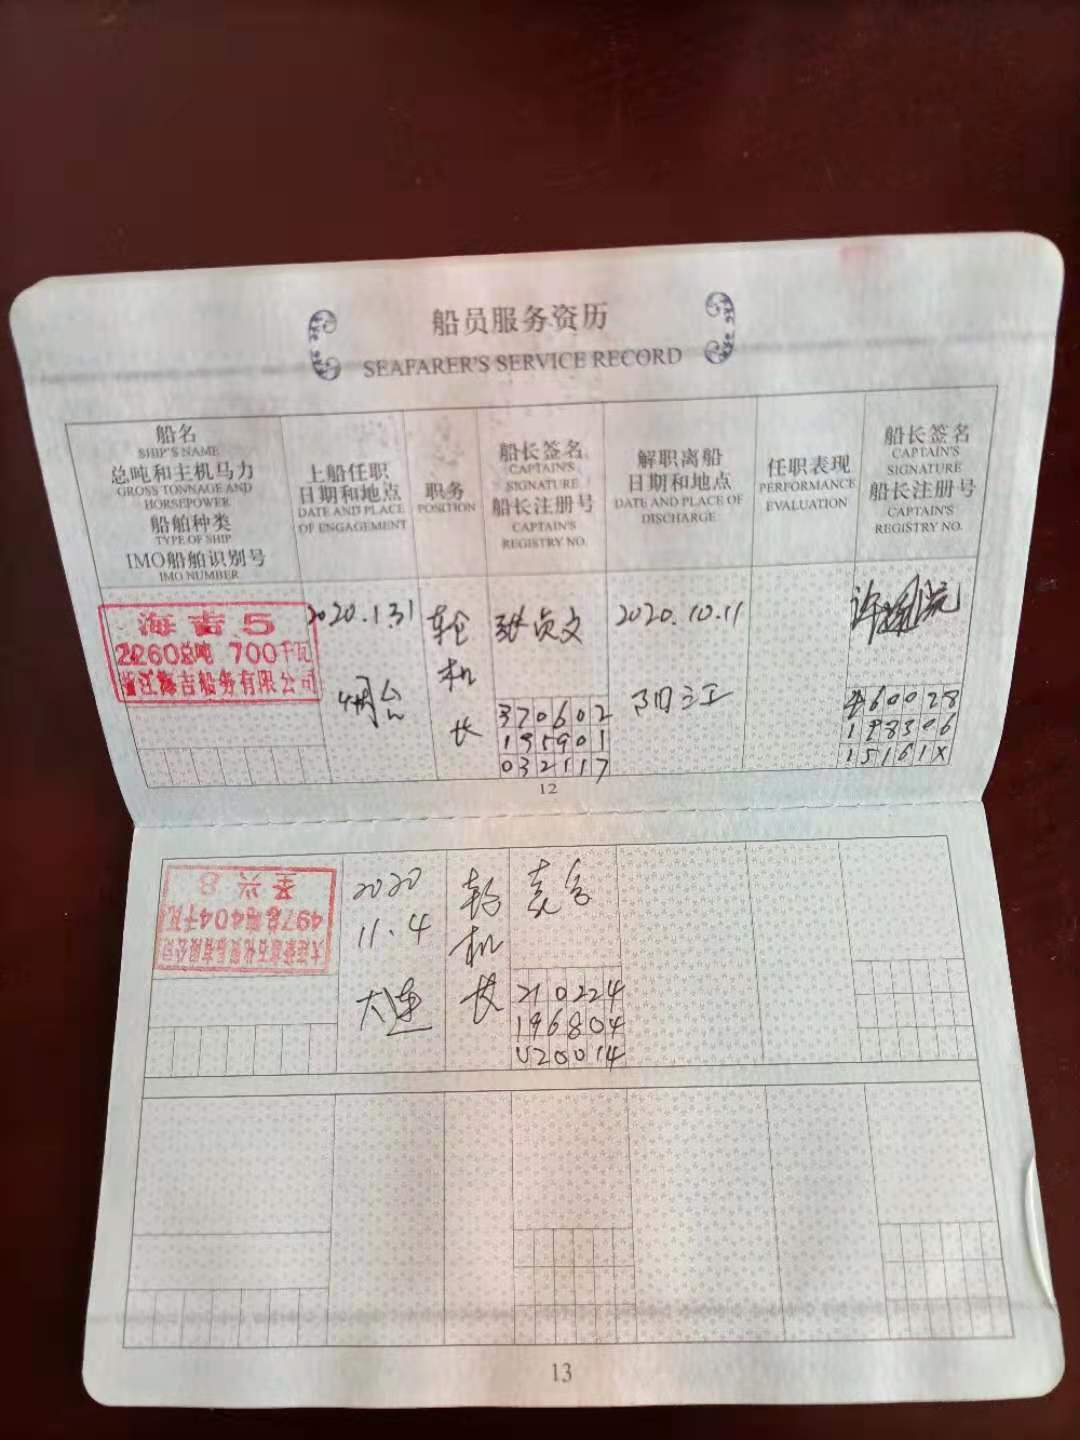 船员服务资历
SEAFARER'S SERVICE RECORD
船名
SHIP'S NAME
总吨和主机马力
GROSS TONNAGE AND
HORSEPOWER
船舶种类
TYPE OF SHIP
IMO船舶识别号
IMO NUMBER
上船任职
日期和地点
DATE AND PLACE
OF ENGAGEMENT
职务
POSITION
船长签名
CAPTAIN'S
SIGNATURE
船长注册号
CAPTAIN'S
REGISTRY NO.
解职离船
日期和地点
DATE AND PLACE OF
DISCHARGE
任职表现
PERFORMANCE
EVALUATION
船长签名
CAPTAIN'S
SIGNATURE
船长注册号
CAPTAIN'S
REGISTRY NO.
海吉5
2260总吨 700千瓦
浙江海吉船务有限公司
2020.1.31
烟台
轮
机
长
张贞文
370602
195901
032117
2020.10.11
阳江
许
460028
198306
15161X
12
圣兴8
497总吨404千瓦
2020
11.4
大连
轮
机
长
210224
196804
020014
13